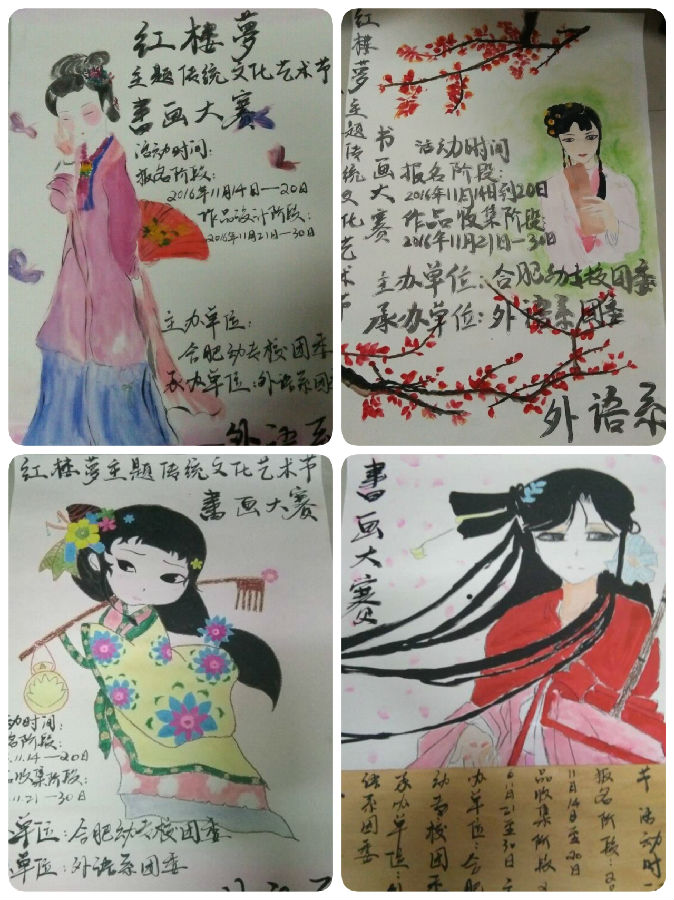 红楼梦
主题传统文化艺术节
书画大赛
活动时间：
报名阶段：
2016年11月14日—20日
作品设计阶段：
2016年11月21日—30日
主办单位：
合肥幼专校团委
承办单位：外语系团委
外语系
红楼梦主题传统文化艺术节
书画大赛
活动时间
报名阶段：
2016年11月14日到20日
作品收集阶段：
2016年11月21日—30日
主办单位：合肥幼专校团委
承办单位：外语系团委
外语系
红楼梦主题传统文化艺术节
书画大赛
动时间：
名阶段：
.11.14—20日
收集阶段：
.11.21—30日
单位：合肥幼专校团委
单位：外语系团委
书画大赛
节活动时
报名阶段：
11月14日至20日
品收集阶段
11月21至30日
办单位：合肥
幼专校团
承办单位：外
语系团委